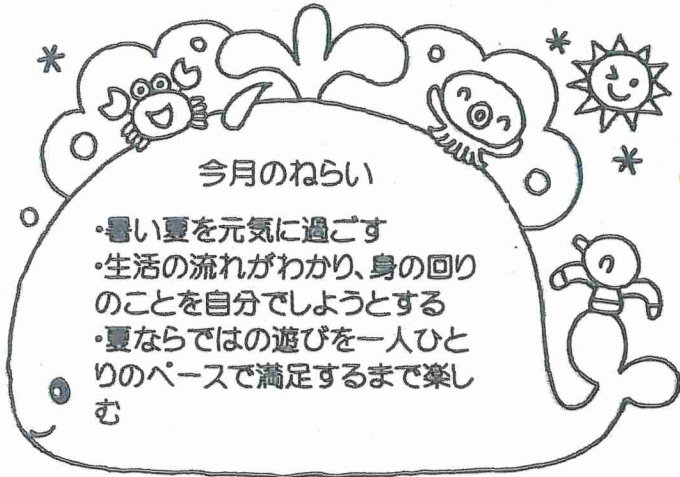 今月のねらい
・暑い夏を元気に過ごす
・生活の流れがわかり、身の回り
のことを自分でしようとする
・夏ならではの遊びを一人ひと
りのペースで満足するまで楽し
む